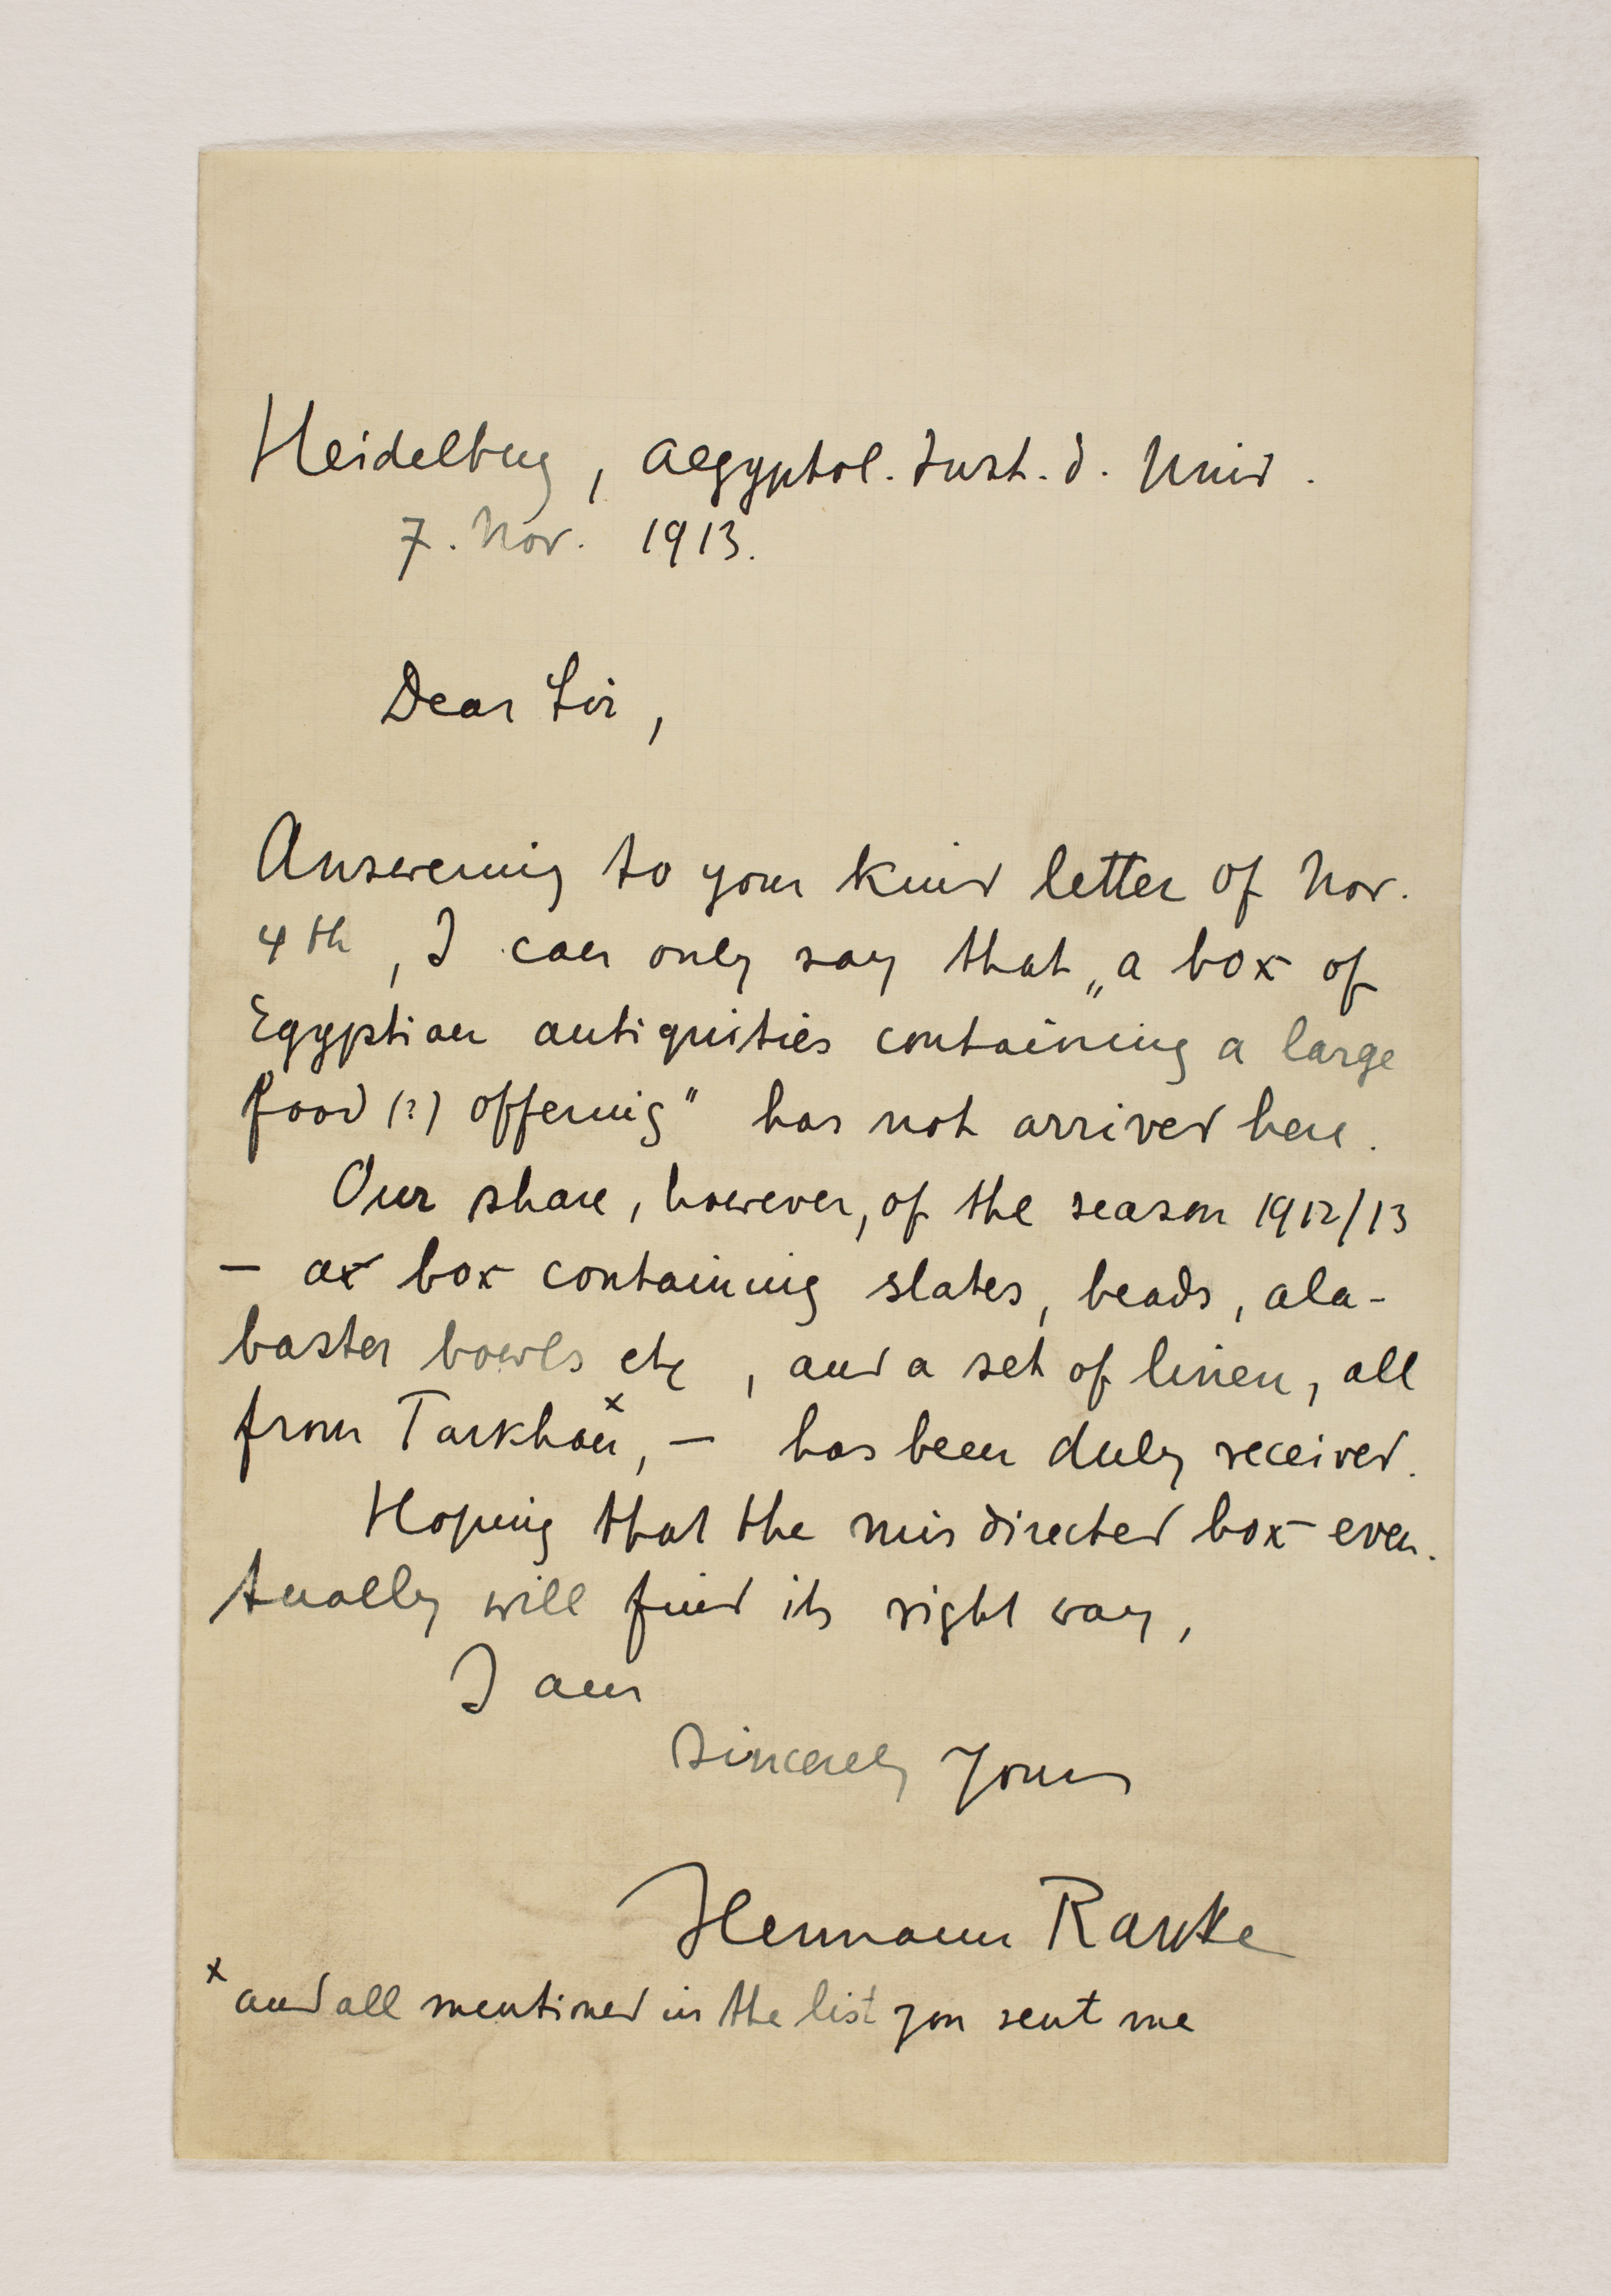 Heidelberg, Aegyptol. Inst. d. Univ.
7. Nov. 1913.
Dear Sir,
Answering to your kind letter of Nov.
4th, I can only say that „a box of
Egyptian antiquities containing a large
food (?) offering" has not arrived here.
Our share, however, of the season 1912/13
— a box containing slates, beads, ala-
baster bowls etc, and a set of linen, all
from Tarkhan x, — has been duly received.
Hoping that the misdirected box even-
tually will find its right way,
I am
Sincerely Yours
Hermann Ranke
x and all mentioned in the list you sent me